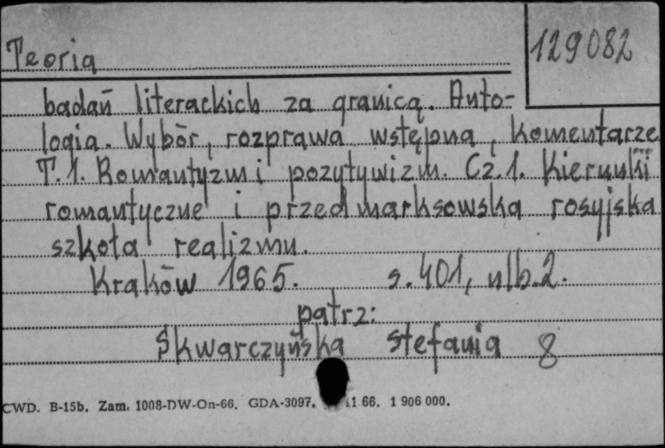 Teoria
129082
badań literackich za granicą. Anto-
logia. Wybór, rozprawa wstępna, komentarze
T.1. Romantyzm i pozytywizm. Cz.1. Kierunki
romantyczne i przedmarksowska rosyjska
szkoła realizmu.
Kraków 1965. s.401, nlb.2.
patrz:
Skwarczyńska Stefania 8
CWD. B-15b. Zam. 1008-DW-On-66. GDA-3097. 11.66. 1 906 000.